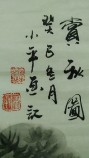 賞秋圖
癸巳年月
小平画記